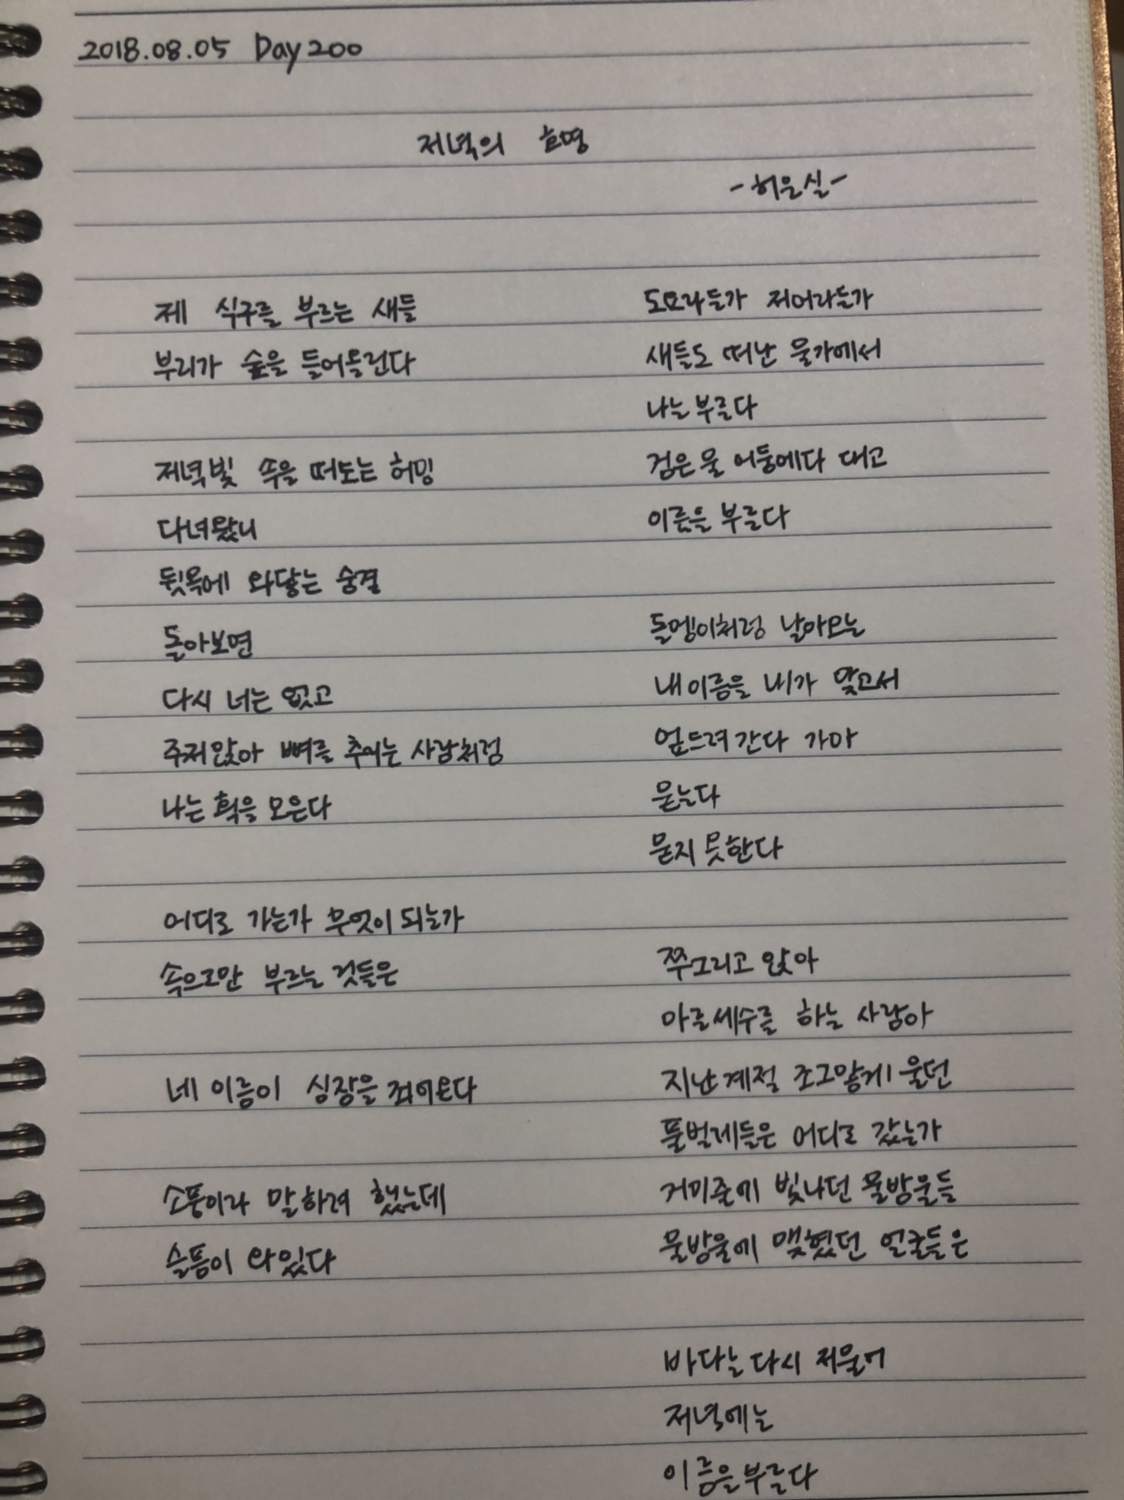 2018.08.05 Day 200
저녁의 호명
-허은실-
제 식구를 부르는 새들
부리가 숲을 들어올린다
저녁빛 속을 떠도는 허밍
다녀왔니
뒷목에 와닿는 숨결
돌아보면
다시 너는 없고
주저앉아 뼈를 추리는 사람처럼
나는 획을 모은다
어디로 가는가 무엇이 되는가
속으로만 부르는 것들은
네 이름이 심장을 죄어온다
소풍이라 말하려 했는데
슬픔이 와있다
도요라든가 저어라든가
새들도 떠난 물가에서
나는 부른다
검은 물 어둠에다 대고
이름을 부른다
돌멩이처럼 날아오는
내 이름을 내가 맞고서
엎드려 간다 가마
묻는다
묻지 못한다
쭈그리고 앉아
마른세수를 하는 사람아
지난 계절 조그맣게 울던
풀벌레들은 어디로 갔는가
거미줄에 빛나던 물방울들
물방울에 맺혔던 얼굴들은
바다는 다시 저물어
저녁에는
이름을 부른다